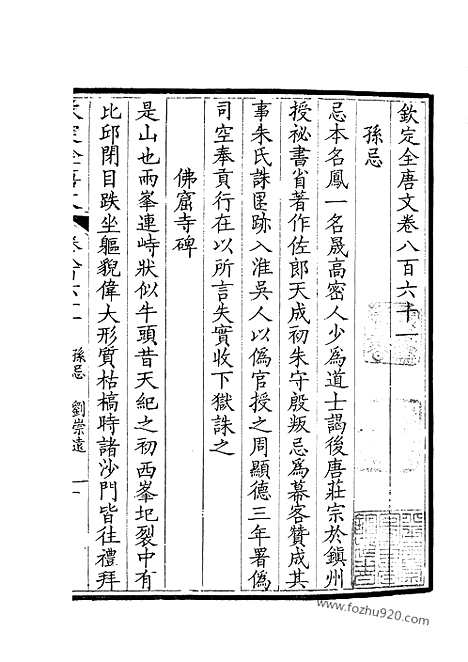 欽定全唐文卷八百六十一
孫忌
忌本名鳳一名晟高密人少為道士謁後唐莊宗於鎮州
授祕書省著作佐郎天成初朱守殷叛忌為幕客贊成其
事朱氏誅匿跡入淮吳人以偽官授之周顯德三年署偽
司空奉貢行在以所言失實收下獄誅之
佛窟寺碑
是山也兩峯連峙狀似牛頭昔天紀之初西峯圯裂中有
比邱閉目趺坐軀貌偉大形質枯槁時諸沙門皆往禮拜
孫忌 劉崇遠 一
www.fozhu920.com